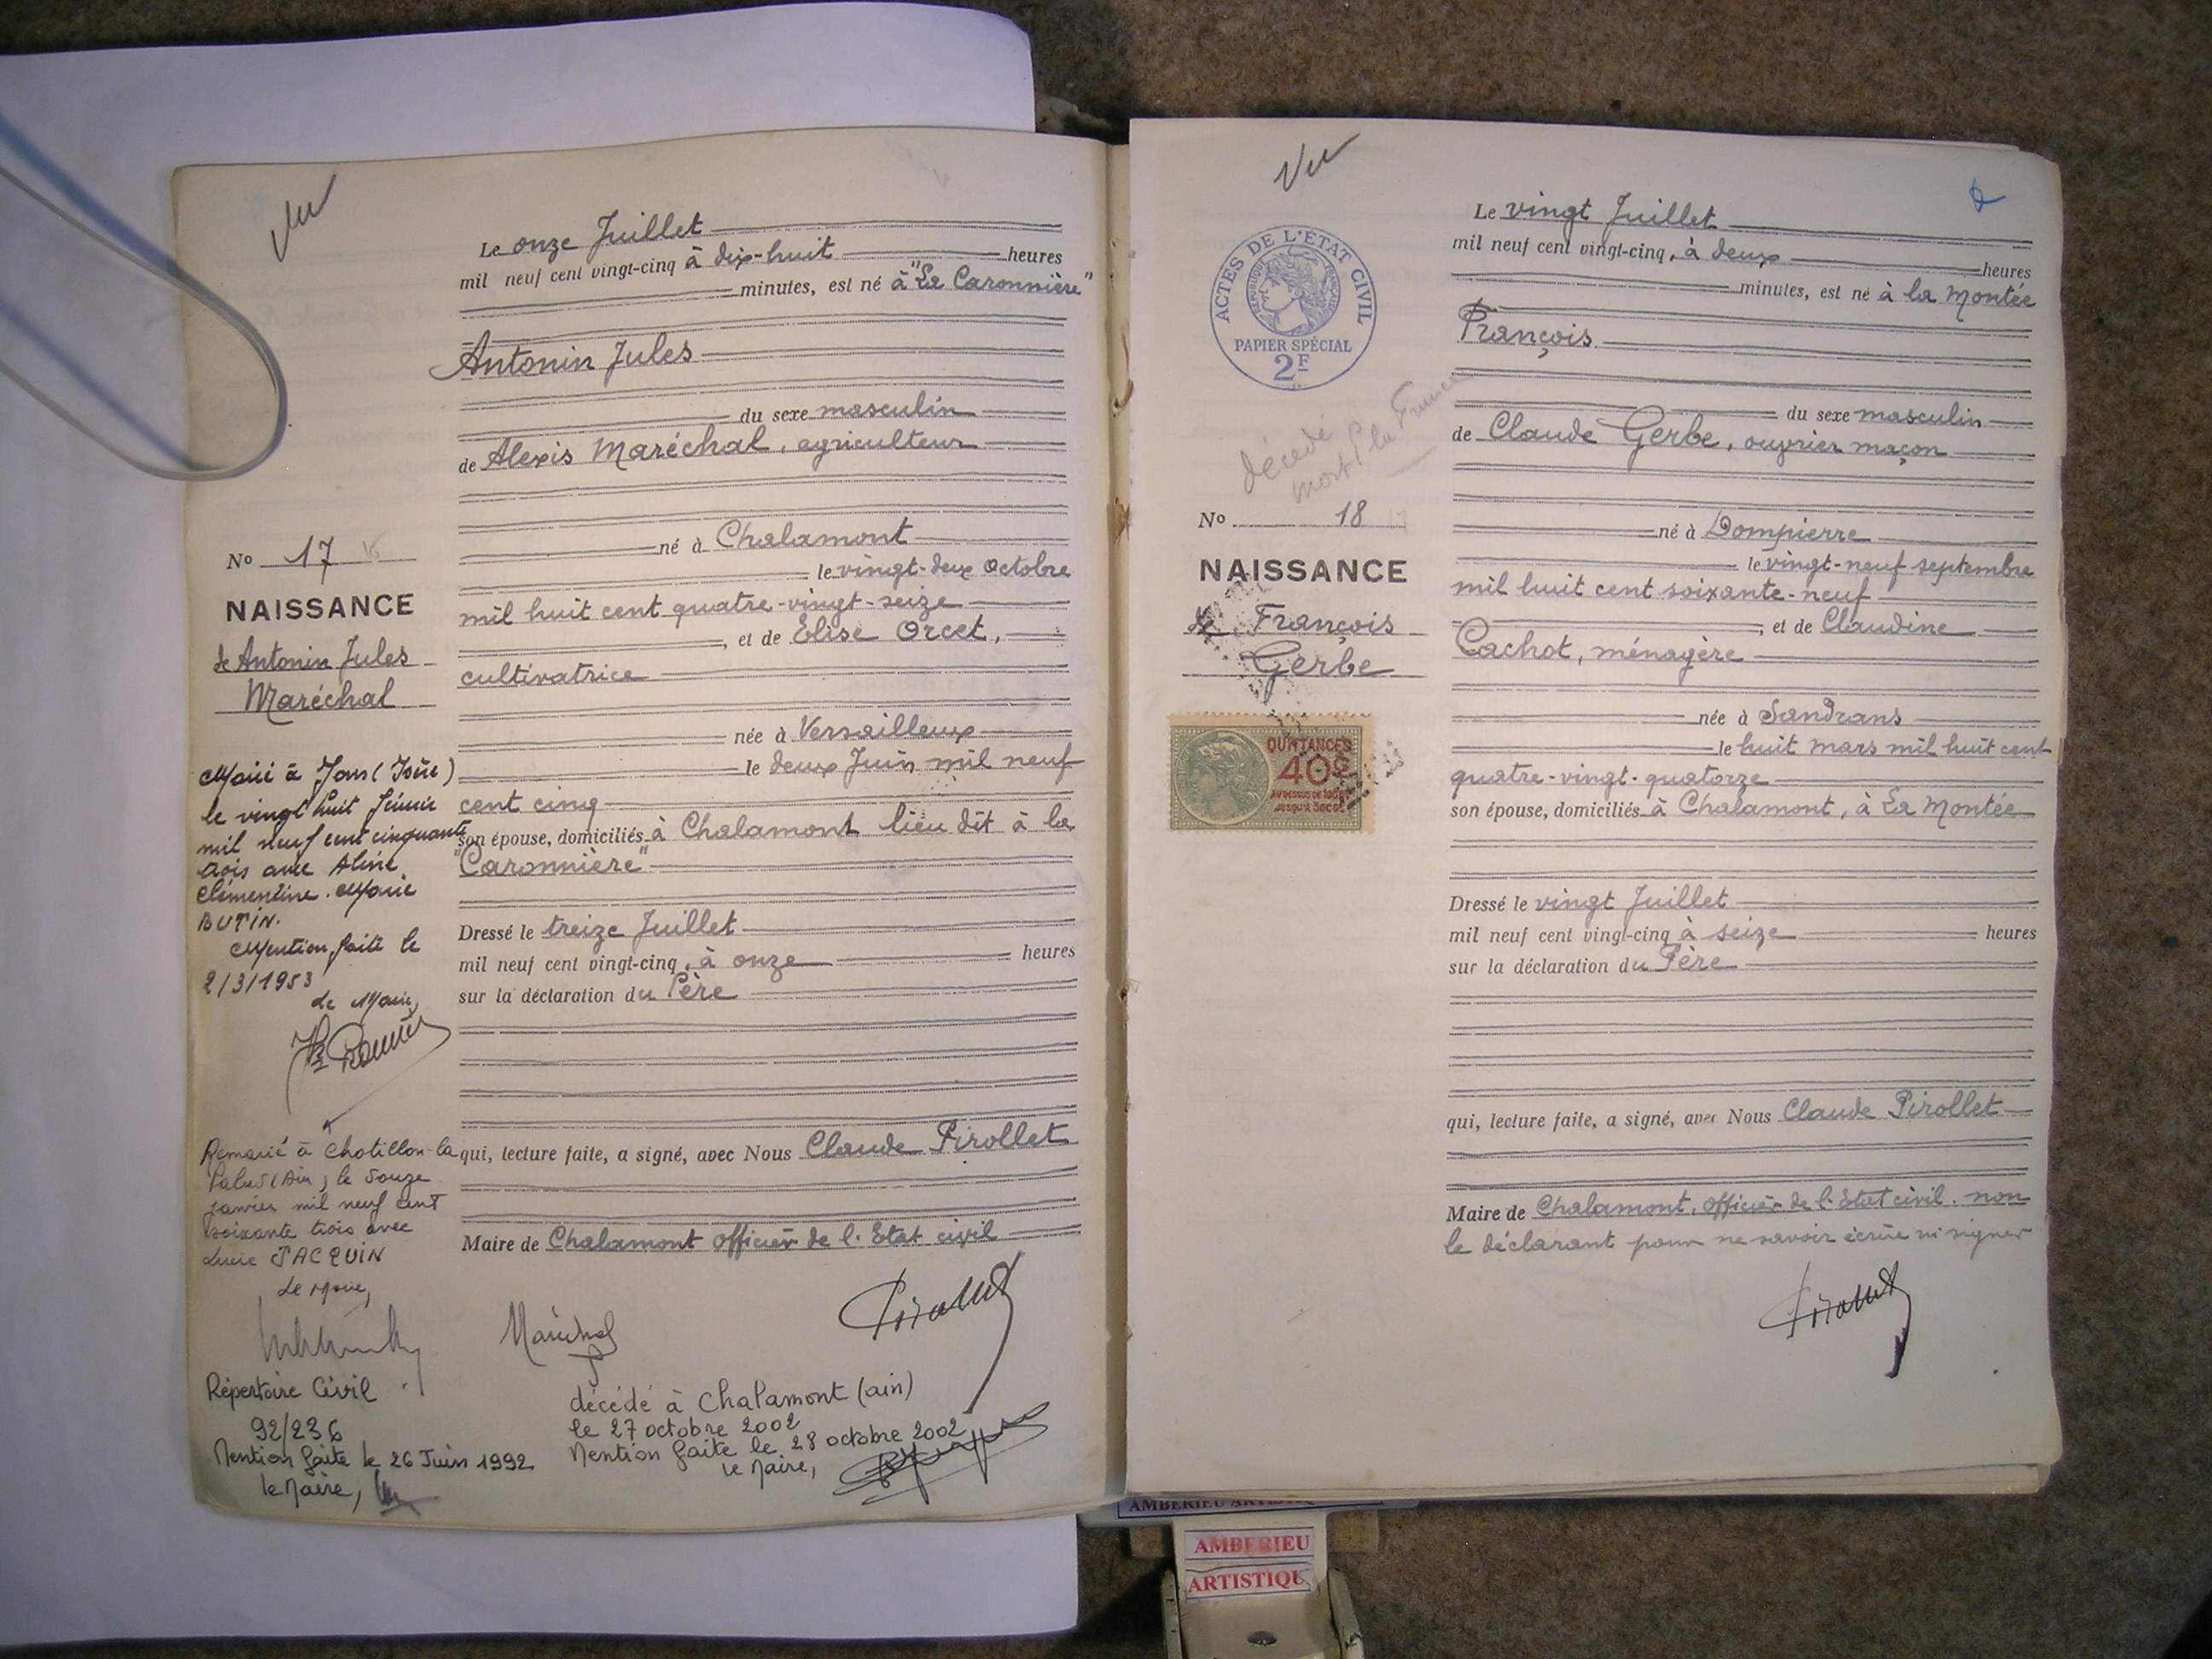 Vu
Le onze Juillet
mil neuf cent vingt-cinq à dix-huit heures
minutes, est né à "La Caronnière"
Antonin Jules
du sexe masculin
de Alexis Maréchal, agriculteur
né à Chalamont
le vingt-deux Octobre
mil huit cent quatre-vingt-seize
, et de Elise Orcet,
cultivatrice
née à Versailleux
le deux Juin mil neuf
cent cinq
son épouse, domiciliés à Chalamont lieu dit à la
"Caronnière"
Dressé le treize Juillet
mil neuf cent vingt-cinq, à onze heures
sur la déclaration du Père
qui, lecture faite, a signé, avec Nous Claude Pirollet
Maire de Chalamont officier de l'Etat civil
Maréchal
Pirollet
décédé à Chalamont (ain)
le 27 octobre 2002
Mention faite le 28 octobre 2002
le Maire,
No 17
NAISSANCE
de Antonin Jules
Maréchal
Marié à (Isère)
le vingt huit
mil neuf cent cinquante
trois avec Aline
Clémentine Marie
BUTIN.
Mention faite le
2/3/1953
Le Maire,
Remarié à Chatillon-la
Palud (Ain) le douze
janvier mil neuf cent
soixante trois avec
Lucie JACQUIN
Le Maire,
Répertoire Civil
92/236
Mention faite le 26 Juin 1992
le Maire,
Vu
Le vingt Juillet
mil neuf cent vingt-cinq, à deux heures
minutes, est né à la Montée
François
du sexe masculin
de Claude Gerbe, ouvrier maçon
né à Dompierre
le vingt-neuf septembre
mil huit cent soixante-neuf
, et de Claudine
Cachot, ménagère
née à Sandrans
le huit mars mil huit cent
quatre-vingt-quatorze
son épouse, domiciliés à Chalamont, à La Montée
Dressé le vingt Juillet
mil neuf cent vingt-cinq à seize heures
sur la déclaration du Père
qui, lecture faite, a signé, avec Nous Claude Pirollet
Maire de Chalamont, officier de l'Etat civil. non
le déclarant pour ne savoir écrire ni signer
Pirollet
ACTES DE L'ÉTAT CIVIL
RÉPUBLIQUE FRANÇAISE
PAPIER SPÉCIAL
2F
décédé
mort p la France
No 18 17
NAISSANCE
de François
Gerbe
QUITTANCES
40c
AU DESSUS DE 100F
JUSQU'À
AMBERIEU
AMBERIEU
ARTISTIQUE